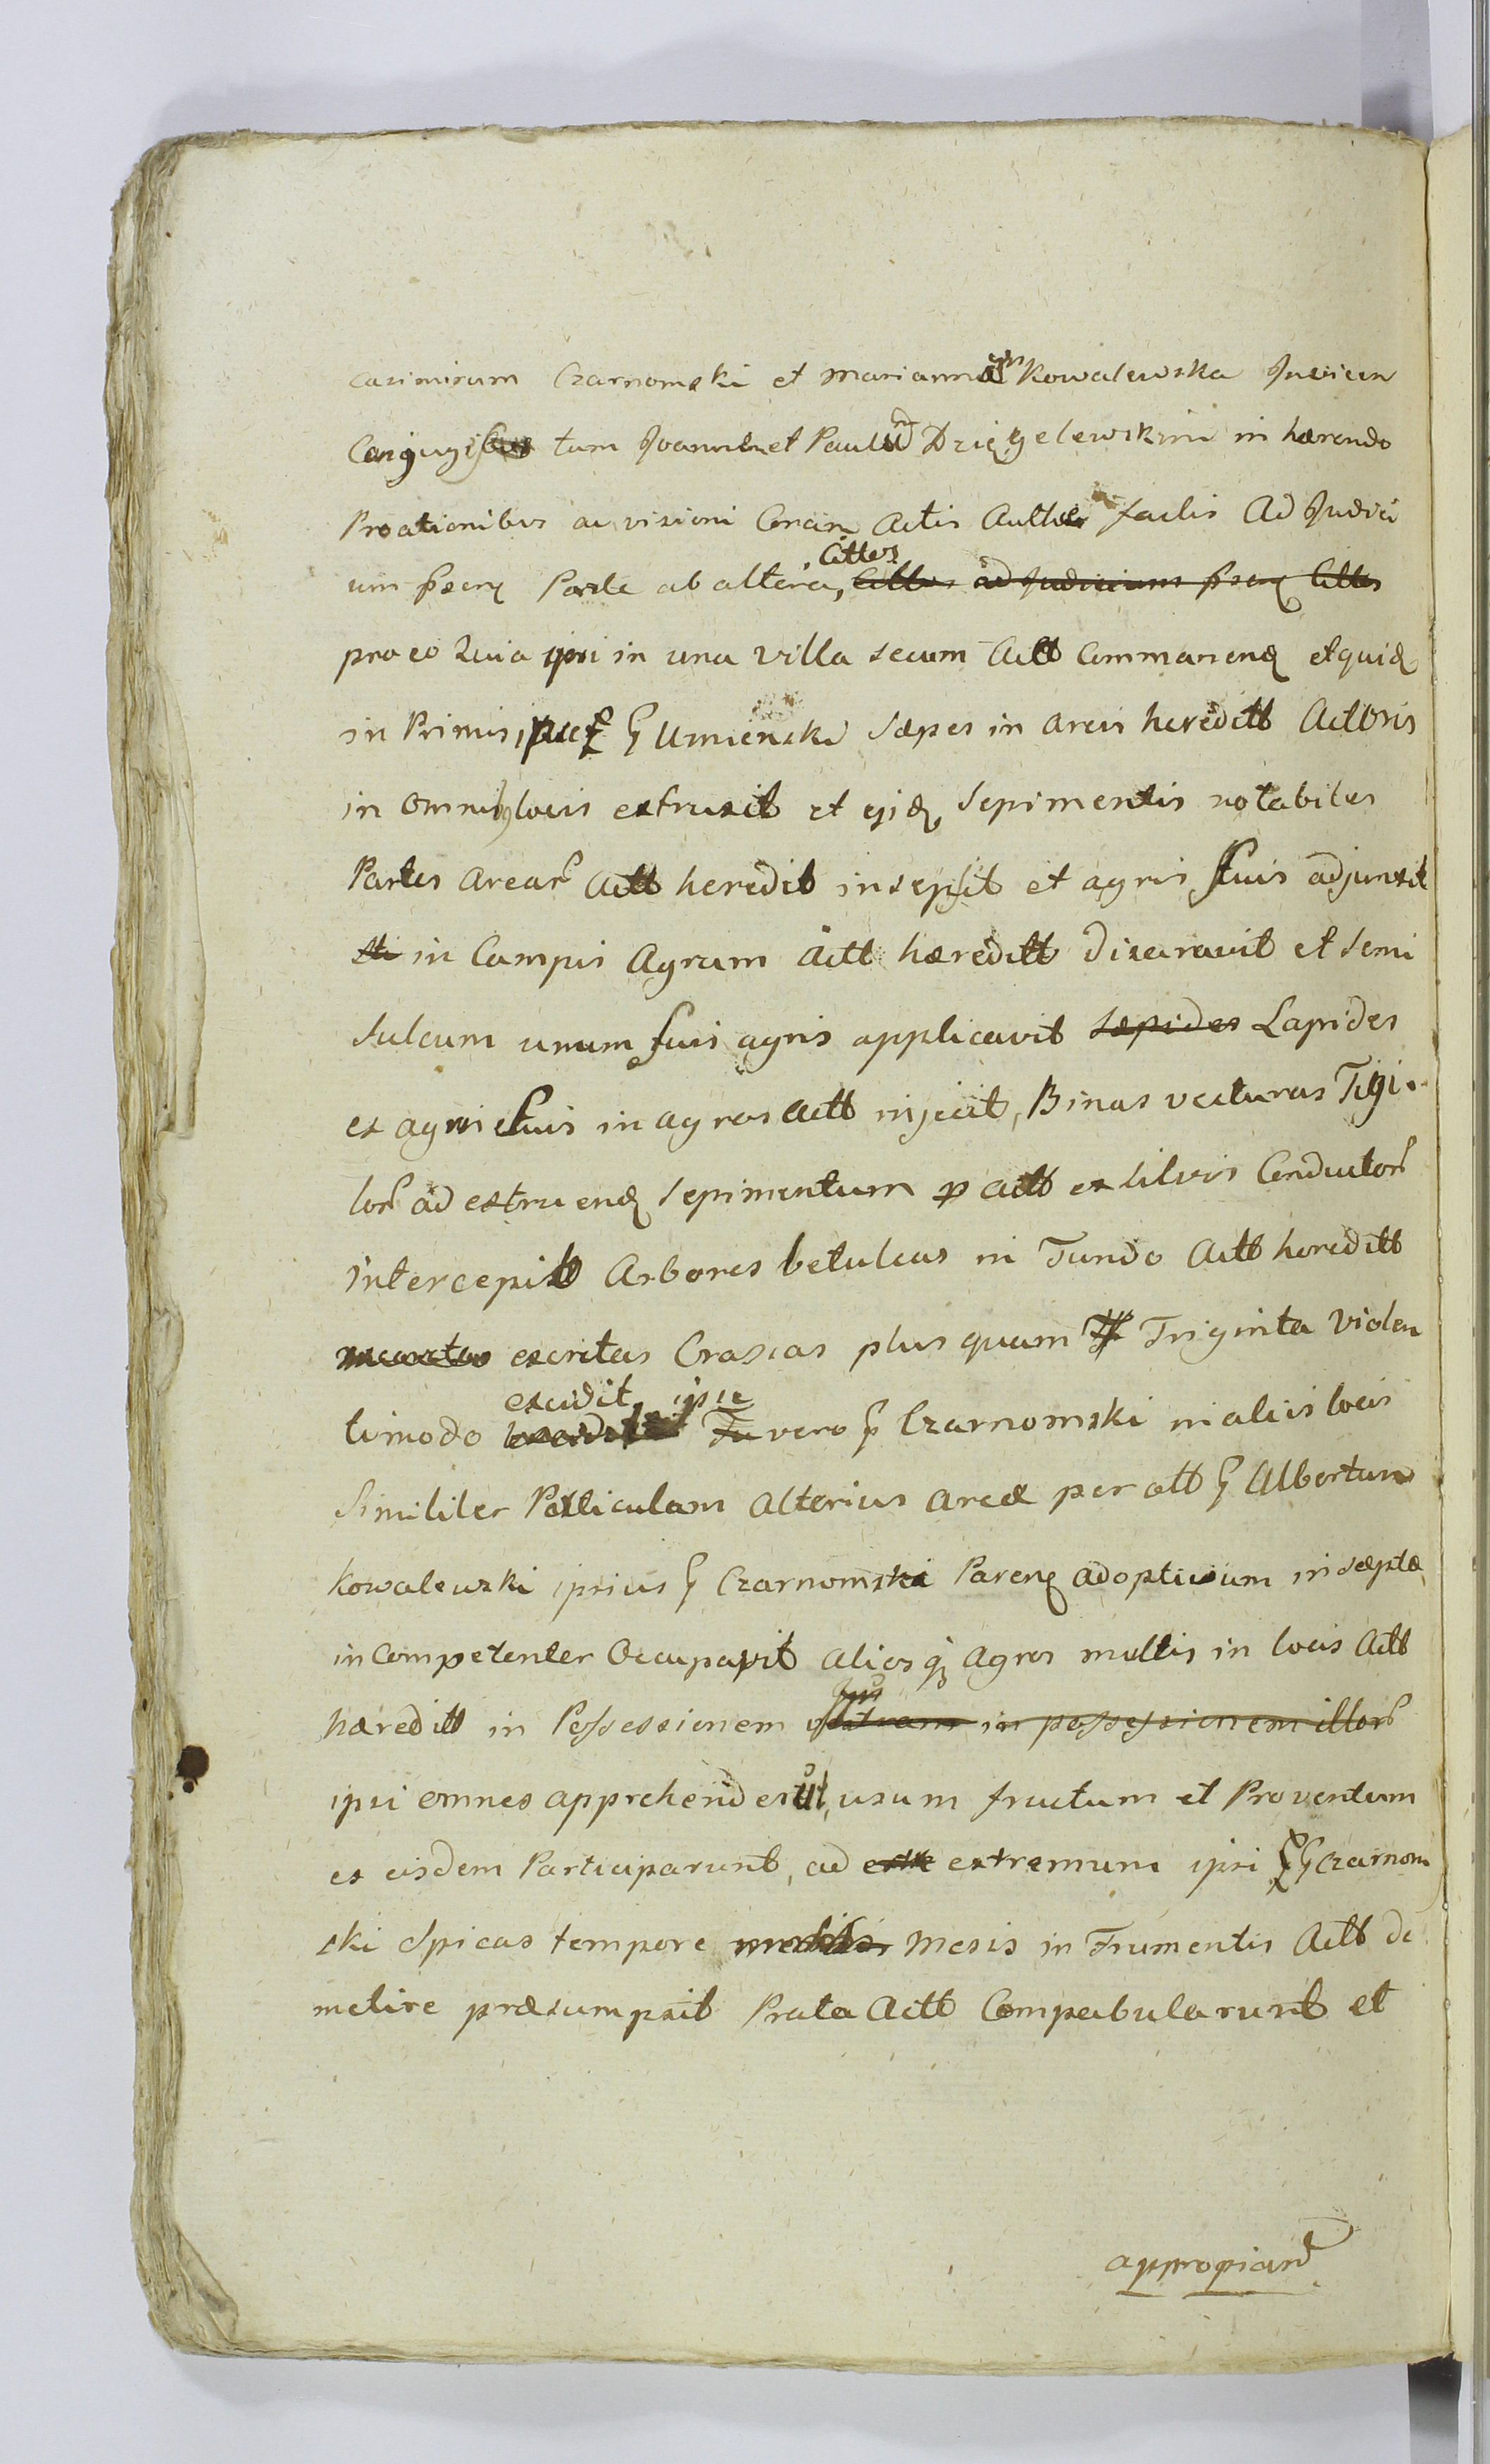 Casimirum Czarnomski et Mariannam Kowalewska Invicem
Conjuges tum Joannem et Paulum Dzięgelewskim in hærendo
Protationibus ac visioni Coram Actis Authen factis Ad Judici
um præsens Parte ab altera, Cittos Cittos ad Judicium præsens Cittos
pro eo Quia ipsi in una villa secum Actt Commanend et quid
in Primis, præf G Umienski Sæpes in areis hereditt Actoris
in omnibq locis extruxit et ejsd Sepimentis notabiles
Partes arear Actt heredit insepsit et agris suis adjunxit
in Campis Agrum Actt hæreditt disaravit et semi
sulcum unum suis agris applicavit Sæpides Lapides
ex agris suis in agros Actt injecit, Binas vecturas Tigi
lor ad extruend Sepimentum p Actt ex silvis Conductor
intercepit Arbores betuleas in Fundo Actt hereditt
excretas Crassas plus quam Tr Triginta violen
timodo excidit, ipse vero G Czarnomski in aliis locis
Similiter Particulam alterius areæ per ott G Albertum
Kowalewski ipsius G Czarnomski Parenq adoptivum inseptæ
incompetenter Occupavit aliosq agros multis in locis Actt
hæreditt in Possessionem in possessionem illor
ipsi omnes apprehenderut, usum fructum et Proventum
ex eisdem Participarunt, ad ext extremum ipsi G Czarnom
ski Spicas tempore Mesis in Frumentis Actt de
metire præsumpsit Prata Actt Compabularunt et
appropiand